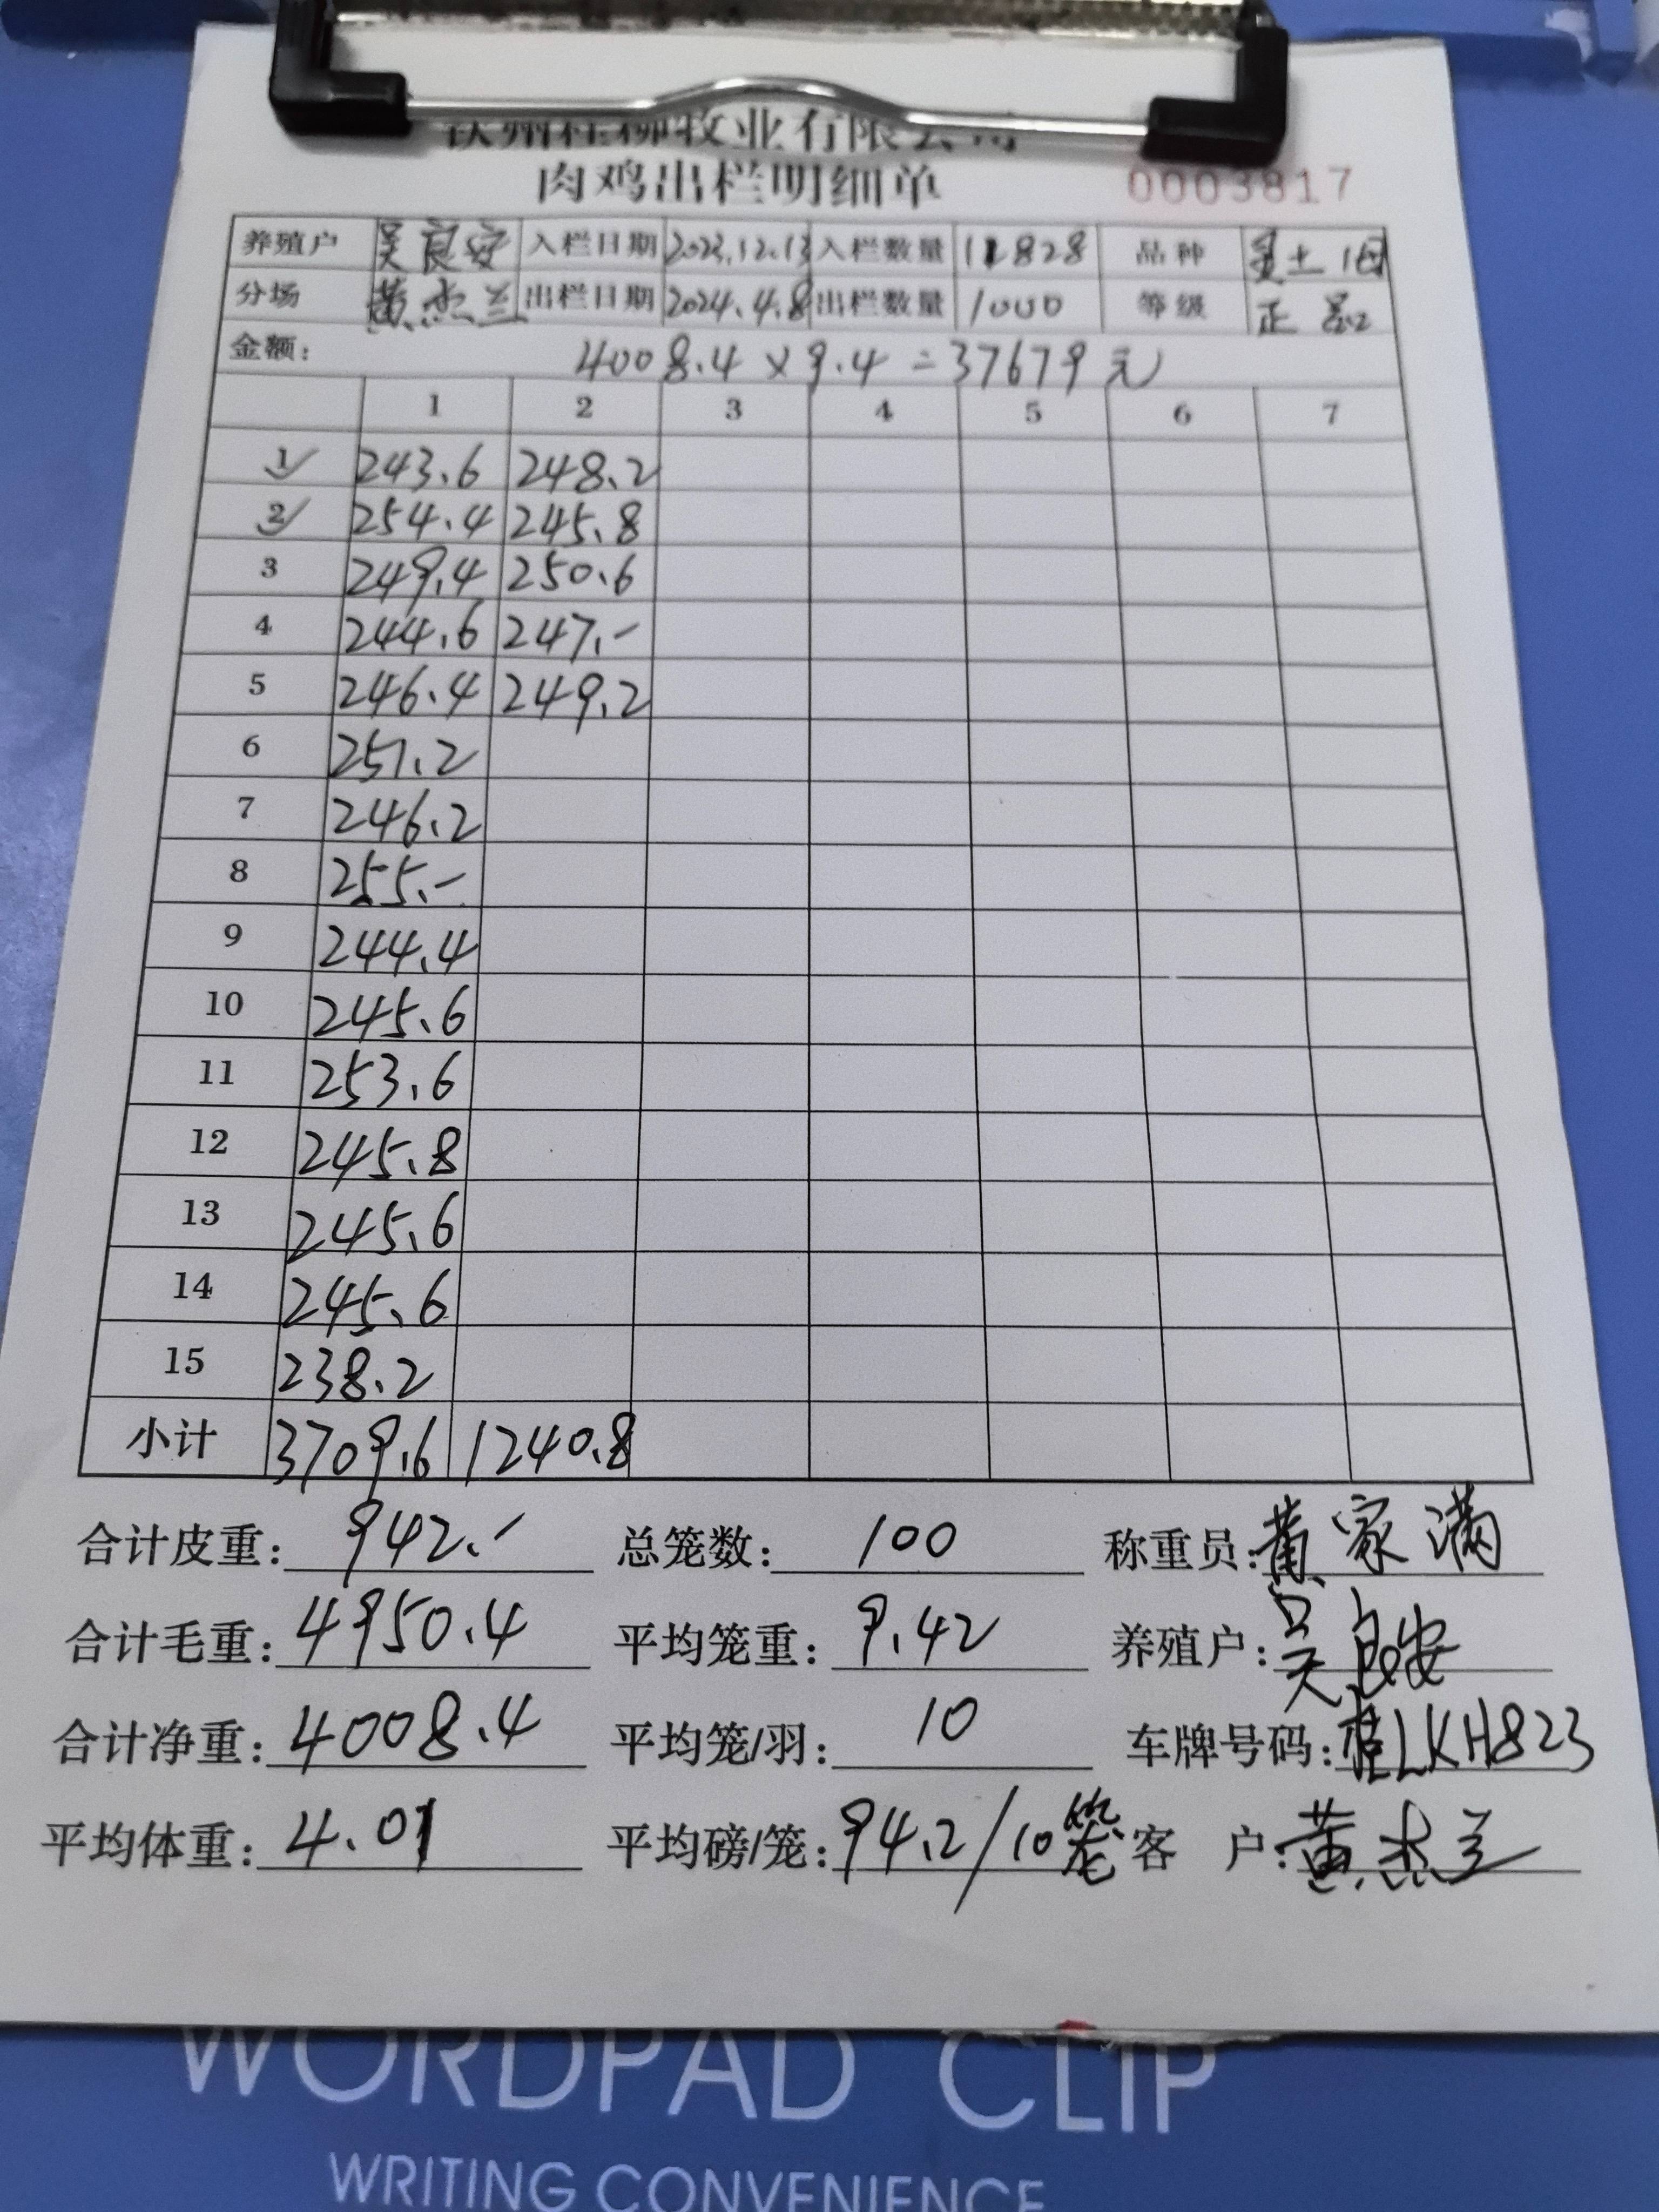 钦州桂柳牧业有限公司
肉鸡出栏明细单 0003817
养殖户 吴良安 入栏日期 2023.12.13 入栏数量 11828 品种 灵土1母
分场 黄杰兰 出栏日期 2024.4.8 出栏数量 1000 等级 正品
金额: 4008.4×9.4=37679元
1 2 3 4 5 6 7
1 243.6 248.2
2 254.4 245.8
3 249.4 250.6
4 244.6 247.-
5 246.4 249.2
6 251.2
7 246.2
8 255.-
9 244.4
10 245.6
11 253.6
12 245.8
13 245.6
14 245.6
15 238.2
小计 3709.6 1240.8
合计皮重: 942.- 总笼数: 100 称重员: 黄家满
合计毛重: 4950.4 平均笼重: 9.42 养殖户: 吴良安
合计净重: 4008.4 平均笼/羽: 10 车牌号码: 桂LKH823
平均体重: 4.01 平均磅/笼: 94.2/10笼 客 户: 黄杰兰
WORDPAD CLIP
WRITING CONVENIENCE